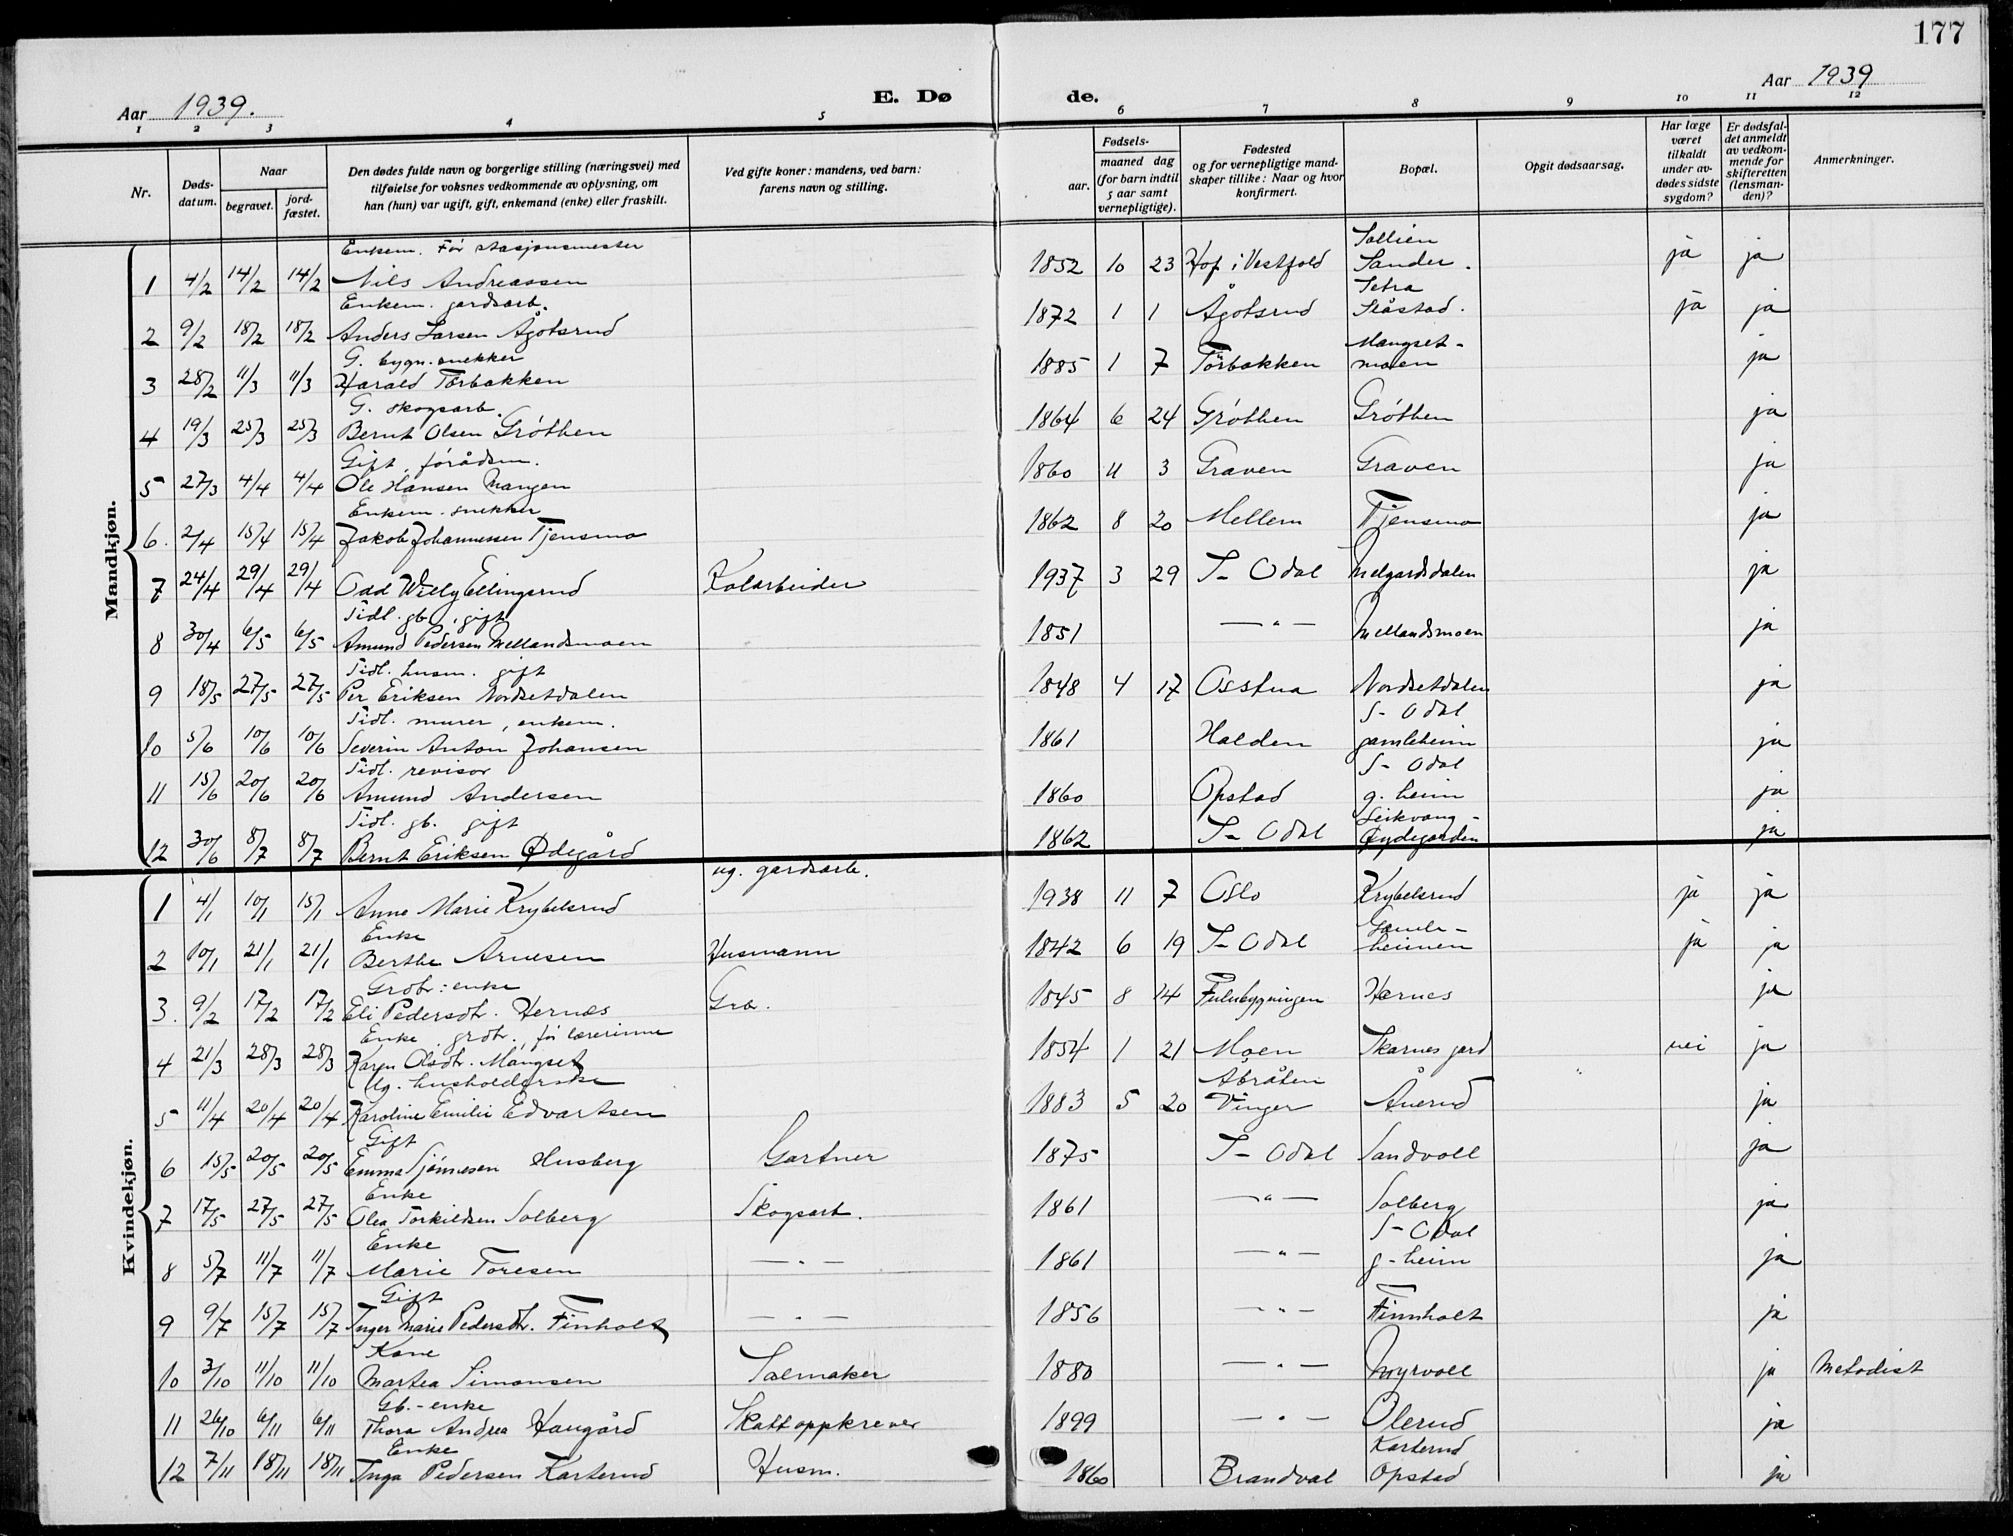 177
Aar 1939.
E. Dø
de.
Aar 1939
1 2 3 4 5 6 7 8 9 10 11 12
Nr.
Døds-
datum.
Naar
begravet.
jord-
fæstet.
Den dødes fulde navn og borgerlige stilling (næringsvei) med
tilføielse for voksnes vedkommende av oplysning, om
han (hun) var ugift, gift, enkemand (enke) eller fraskilt.
Ved gifte koner: mandens, ved barn:
farens navn og stilling.
Fødsels-
aar.
maaned dag
(for barn indtil
5 aar samt
vernepligtige).
Fødested
og for vernepligtige mand-
skaper tillike: Naar og hvor
konfirmert.
Bopæl.
Opgit dødsaarsag.
Har læge
været
tilkaldt
under av-
dødes sidste
sygdom?
Er dødsfal-
det anmeldt
av vedkom-
mende for
skifteretten
(lensman-
den)?
Anmerkninger.
Mandkjøn.
Enkem. Før stasjonsmester Sollien
1 4/2 14/2 14/2 Nils Andreassen 1852 10 23 Hof i Vestfold Sander. ja ja
Enkem. gardsarb. Setra
2 9/2 18/2 18/2 Anders Larsen Ågotsrud 1872 1 1 Ågotsrud Skåstad. ja ja
G. bygn. snekker Mangset-
3 28/2 11/3 11/3 Harald Törbakken 1885 1 7 Törbakken moen ja
G. skogsarb.
4 19/3 25/3 25/3 Bernt Olsen Gróthen 1864 6 24 Gróthen Gróthen ja
Gift, förådsm.
5 27/3 4/4 4/4 Ole Hansen Mangen 1860 11 3 Graven Graven ja
Enkem. snekker
6. 2/4 15/4 15/4 Jakob Johannessen Tjensmo 1862 8 20 Mellem Tjensmo ja
7 24/4 29/4 29/4 Odd Willy Ellingsrud Kolarbeider 1937 3 29 S- Odal Melgardsdalen ja
Tidl. gb. gift
8 30/4 6/5 6/5 Amund Pedersen Mellandsmoen 1851 — " — Mellandsmoen ja
Tidl. husm. gift
9 18/5 27/5 27/5 Per Eriksen Nordsetdalen 1848 4 17 Osstua Nordsetdalen ja
Tidl. murer, enkem. S- Odal
10 5/6 10/6 10/6 Severin Anton Johansen 1861 Halden gamleheim ja
Tidl. revisor S- Odal
11 15/6 20/6 20/6 Amund Andersen 1860 Opstad g. heim ja
Tidl. gb. gift Leikvang-
12 30/6 8/7 8/7 Bernt Eriksen Ødegård 1862 S- Odal Øydegarden ja
Kvindekjøn.
ug. gardsarb.
1 4/1 10/1 15/1 Anne Marie Krybelsrud 1938 11 7 Oslo Krybelsrud ja ja
Enke Gamle-
2 10/1 21/1 21/1 Berthe Arnesen Husmann 1842 6 19 S- Odal heimen ja ja
Grdbr: enke
3. 9/2 17/2 17/2 Eli Pedersdtr. Hernes Grb. 1845 8 14 Fulubygningen Hernes ja
Enke grdbr. för lærerinne
4 21/3 28/3 28/3 Karen Olsdtr. Mangset 1854 1 21 Moen Skarnes gard nei ja
Ug. husholderske Abråten
5 11/4 20/4 20/4 Karoline Emilie Edvartsen 1883 5 20 Vinger Åerud ja
Gift
6 15/5 20/5 20/5 Emma Sjönnesen Husberg Gartner 1875 S- Odal Sandvoll ja
Enke
7 17/5 27/5 27/5 Olea Torkildsen Solberg Skogsarb. 1861 — " — Solberg ja
Enke S- Odal
8 5/7 11/7 11/7 Marie Toresen — " — 1861 — " — g- heim ja
Gift
9 9/7 15/7 15/7 Inger Marie Pedersdtr. Finholt — " — 1856 — " — Finnholt ja
Kone
10 3/10 11/10 11/10 Martea Simonsen Salmaker 1880 — " — Myrvoll ja Metodist
Gb.- enke
11 26/10 6/11 6/11 Thora Andrea Haugård Skattoppkrever 1899 — " — Olerud ja
Enke Karterud
12 7/11 18/11 18/11 Inga Pedersen Karterud Husm. 1860 Brandval Opstad ja